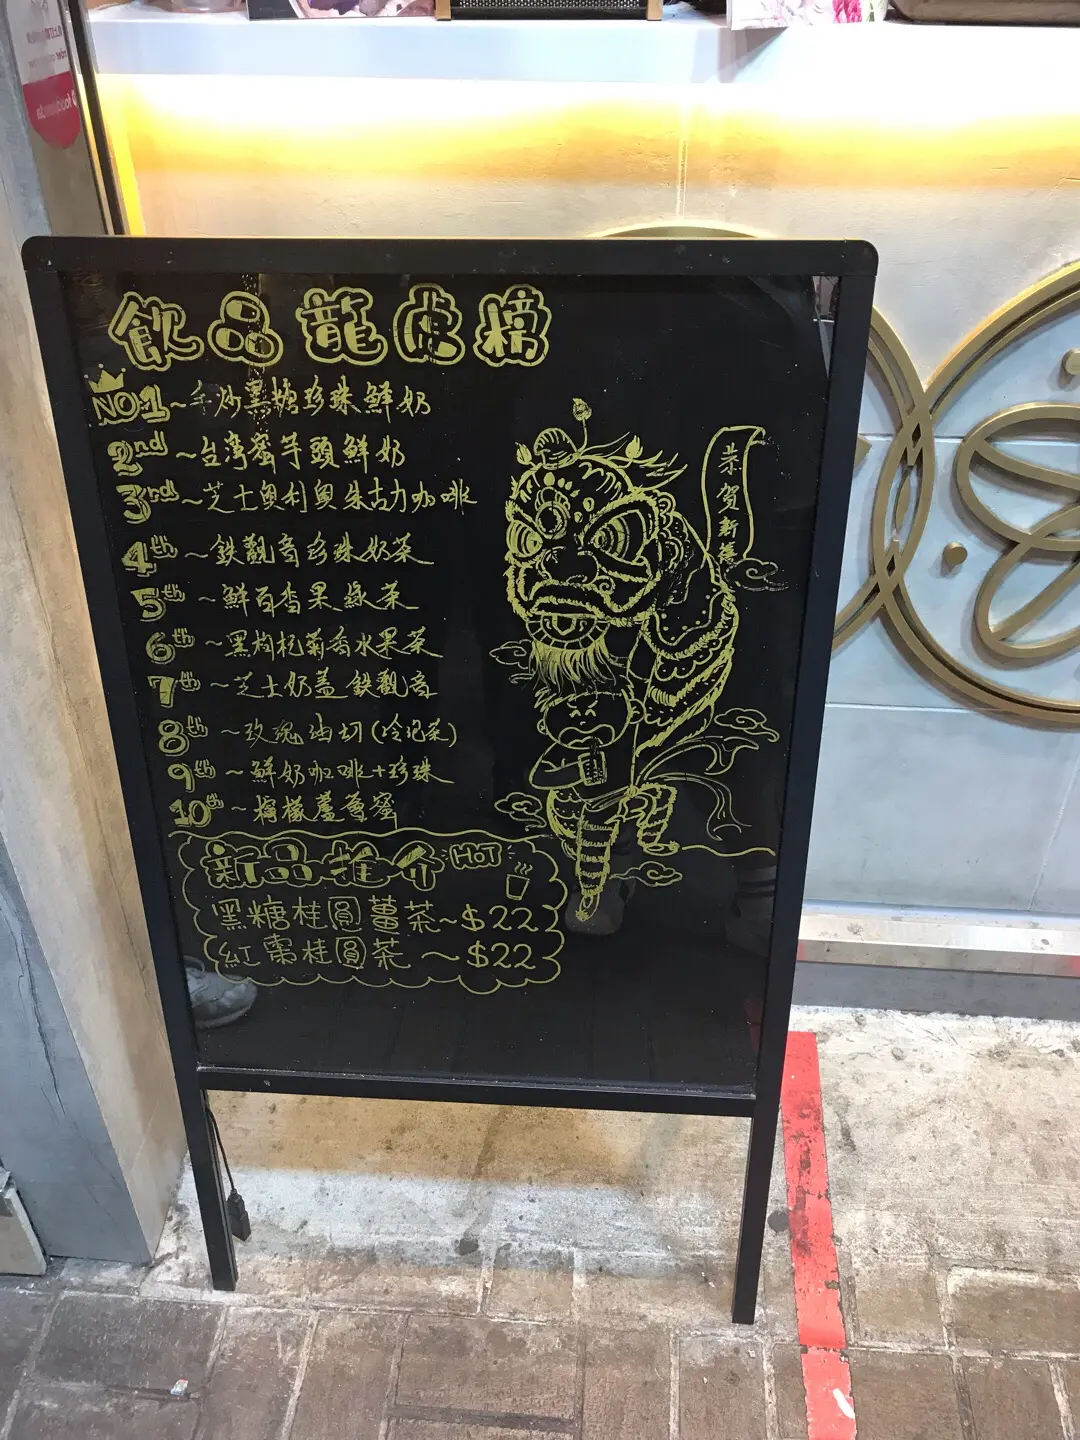 飲品龍虎榜
NO.1~手炒黑糖珍珠鮮奶
2nd~台灣蜜芋頭鮮奶
3rd~芝士奧利奧朱古力咖啡
4th~鉄觀音珍珠奶茶
5th~鮮百香果綠茶
6th~黑枸杞菊香水果茶
7th~芝士奶蓋鉄觀音
8th~玫瑰油切(冷泡茶)
9th~鮮奶咖啡+珍珠
10th~檸檬蘆薈蜜
新品推介 HOT
黑糖桂圓薑茶~$22
紅棗桂圓茶~$22
恭賀新禧
foodpanda